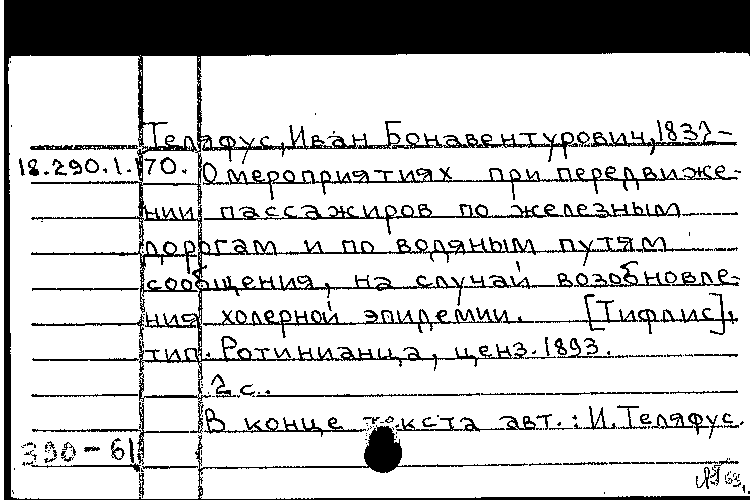 Теляфус, Иван Бонавентурович, 1832-
18.290.1.170. О мероприятиях при передвиже-
нии пассажиров по железным
дорогам и по водяным путям
сообщения, на случай возобновле-
ния холерной эпидемии. [Тифлис],
тип. Ротинианца, ценз. 1893.
2 с.
В конце текста авт.: И. Теляфус.
390-61